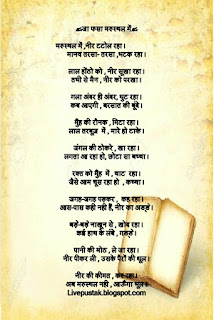 जा फसा मरुस्थल में
मरुस्थल में ,नीर टटोल रहा।
मानव तरसा- तरसा ,भटक रहा।
लाल होंठो को , नीर सुखा रहा।
तभी से मैन , नीर को परखा।
गला अंबर ही अंबर, घुट रहा।
कब आएगी , बरसात की बूंदे।
मुँह की रौनक , मिटा रहा।
लाल तरबुज में , मारे हो टाके।
जंगल की ठोकरे , खा रहा।
लगता आ रहा हो, छोटा सा बच्चा।
रक्त को मुँह में , चाट रहा।
जैसे आम चूस रहा हो , कच्चा।
जगह-जगह पड़कर , कह रहा।
आस-पास कही नहीं हैं, नीर का
बड़े-बड़े नाखून से , खोब रहा।
कई हाथ के लंबे ,
पानी की मोठ , ले जा रहा।
नीर पीकर ली , उसके पैरों की धूल।
नीर की कीमत , कर रहा।
अब मरुस्थल नही , आऊँगा भूल।
Livepustak.blogspot.com